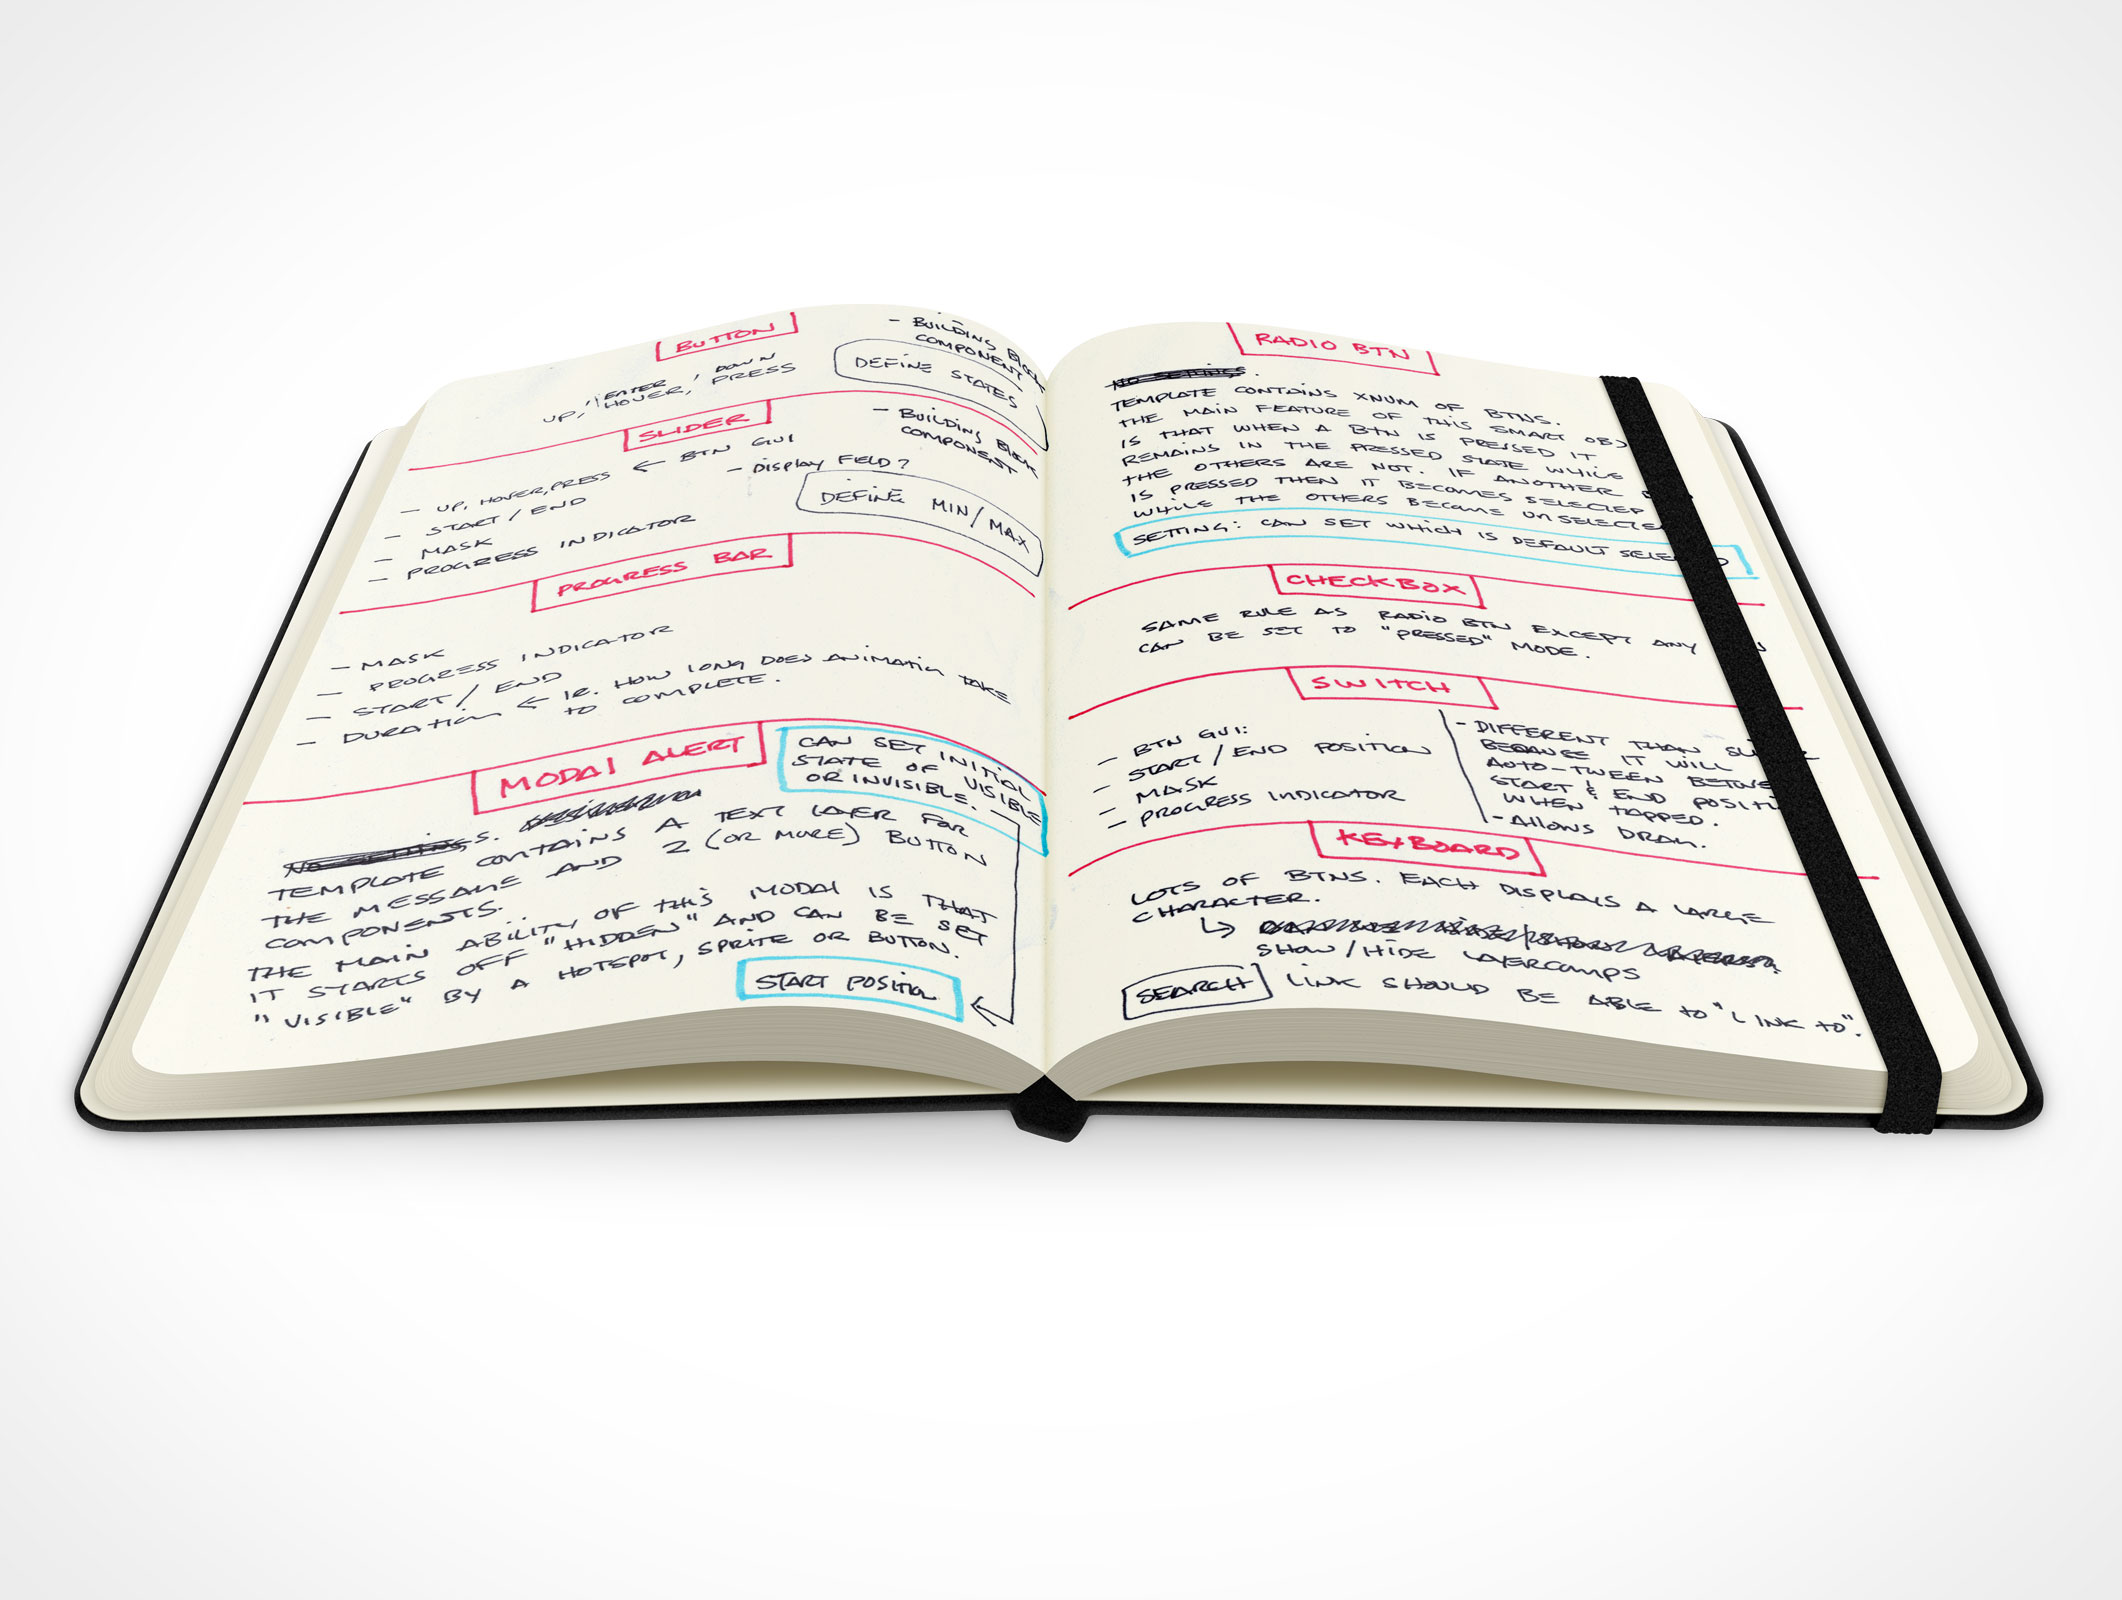 BUTTON
- BUILDING BLOCK
COMPONENT
/ENTER / DOWN
UP, HOVER, PRESS
DEFINE STATES
SLIDER
- BUILDING BLOCK
COMPONENT
- UP, HOVER, PRESS ← BTN GUI
- DISPLAY FIELD?
- START / END
- MASK
- PROGRESS INDICATOR
DEFINE MIN/MAX
PROGRESS BAR
- MASK
- PROGRESS INDICATOR
- START / END
- DURATION ← IE. HOW LONG DOES ANIMATION TAKE
TO COMPLETE.
MODAL ALERT
CAN SET INITIAL
STATE OF VISIBLE
OR INVISIBLE.
NO SETTINGS.
TEMPLATE CONTAINS A TEXT LAYER FOR
THE MESSAGE AND 2 (OR MORE) BUTTON
COMPONENTS.
THE MAIN ABILITY OF THIS MODAL IS THAT
IT STARTS OFF "HIDDEN" AND CAN BE SET
"VISIBLE" BY A HOTSPOT, SPRITE OR BUTTON.
START POSITION
RADIO BTN
NO SETTINGS.
TEMPLATE CONTAINS XNUM OF BTNS.
THE MAIN FEATURE OF THIS SMART OBJ
IS THAT WHEN A BTN IS PRESSED IT
REMAINS IN THE PRESSED STATE WHILE
THE OTHERS ARE NOT. IF ANOTHER
IS PRESSED THEN IT BECOMES SELECTED
WHILE THE OTHERS BECOME UNSELECTED
SETTING: CAN SET WHICH IS DEFAULT SELECTED
CHECKBOX
SAME RULE AS RADIO BTN EXCEPT ANY
CAN BE SET TO "PRESSED" MODE.
SWITCH
- BTN GUI:
- START / END POSITION
- MASK
- PROGRESS INDICATOR
- DIFFERENT THAN SLIDER
BECAUSE IT WILL
AUTO-TWEEN BETWEEN
START & END POSITION
WHEN TAPPED.
- ALLOWS DRAG.
KEYBOARD
LOTS OF BTNS. EACH DISPLAYS A LARGE
CHARACTER.
SHOW/HIDE LAYERCOMPS
SEARCH LINK SHOULD BE ABLE TO "LINK TO".